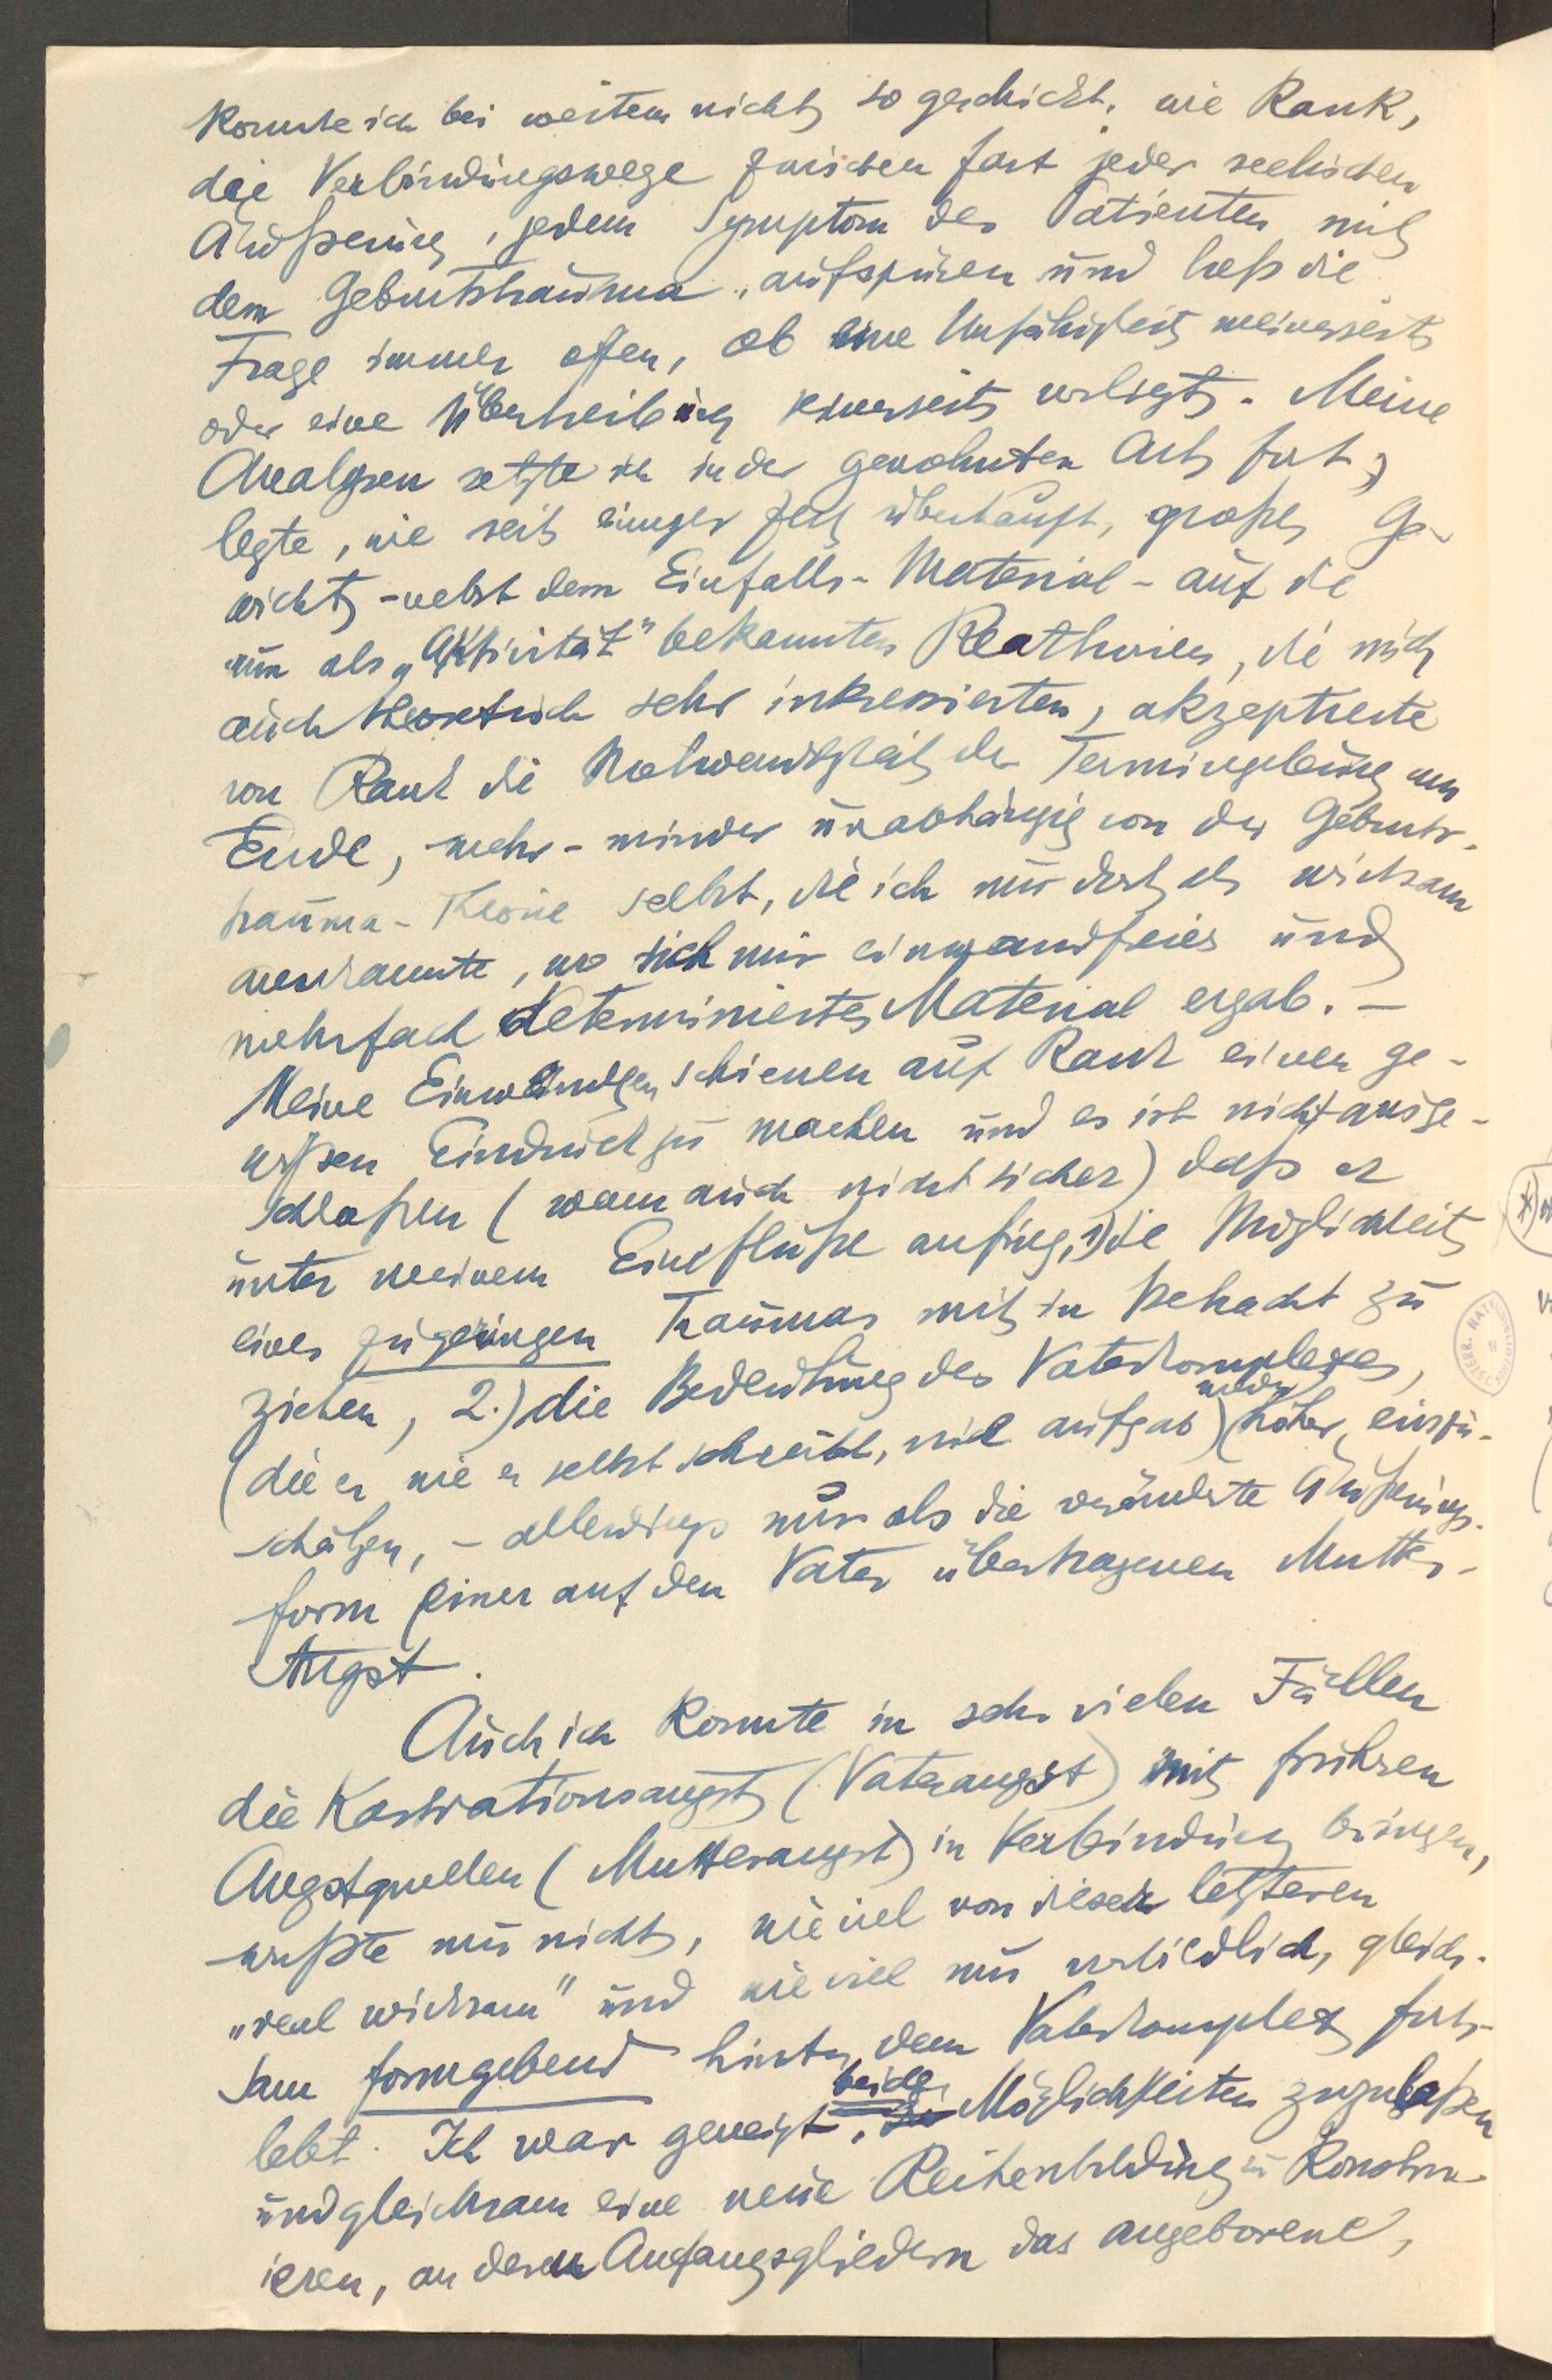 konnte ich bei weitem nicht so geschickt, wie Rank,
die Verbindungswege zwischen fast jeder seelischen
Äußerung, jedem Symptom des Patienten mit
dem Geburtstrauma aufspüren und ließ die
Frage immer offen, ob eine Unfähigkeit meinerseits
oder eine Übertreibung seinerseits vorliegt. Meine
Analysen setzte ich in der gewohnten Art fort,
legte, wie seit einiger Zeit überhaupt, großes Ge-
wicht - nebst dem Einfalls-Material - auf die
nun als „Aktivität" bekannten Reaktionen, die mich
auch theoretisch sehr interessierten, akzeptierte
von Rank die Notwendigkeit der Termingebung am
Ende, mehr-minder unabhängig von der Geburts-
trauma-Theorie selbst, die ich nur dort als wirksam
anerkannte, wo sich mir einwandfreies und
mehrfach determiniertes Material ergab. —
Meine Einwendungen schienen auf Rank einen ge-
wißen Eindruck zu machen und es ist nicht ausge-
schloßen (wenn auch nicht sicher) daß er
unter meinem Einfluße anfing, 1) die Möglichkeit
eines zu geringen Traumas mit in Betracht zu
ziehen, 2.) die Bedeutung des Vaterkomplexes,
(die er wie er selbst schreibt, nie aufgab) höher einzu-
schätzen, - allerdings nur als die veränderte Äußerungs-
form einer auf den Vater übertragenen Mutter-
Angst.
Auch ich konnte in sehr vielen Fällen
die Kastrationsangst (Vaterangst) mit frühren
Angstquellen (Mutterangst) in Verbindung bringen,
wußte nur nicht, wieviel von diesen letzteren
„real wirksam" und wieviel nur gleich-
sam formgebend hinter dem Vaterkomplex fort-
lebt. Ich war geneigt, beide Möglichkeiten zuzulaßen
und gleichsam eine neue Reihenbildung zu konstru-
ieren, an deren Anfangsgliedern das angeborene,